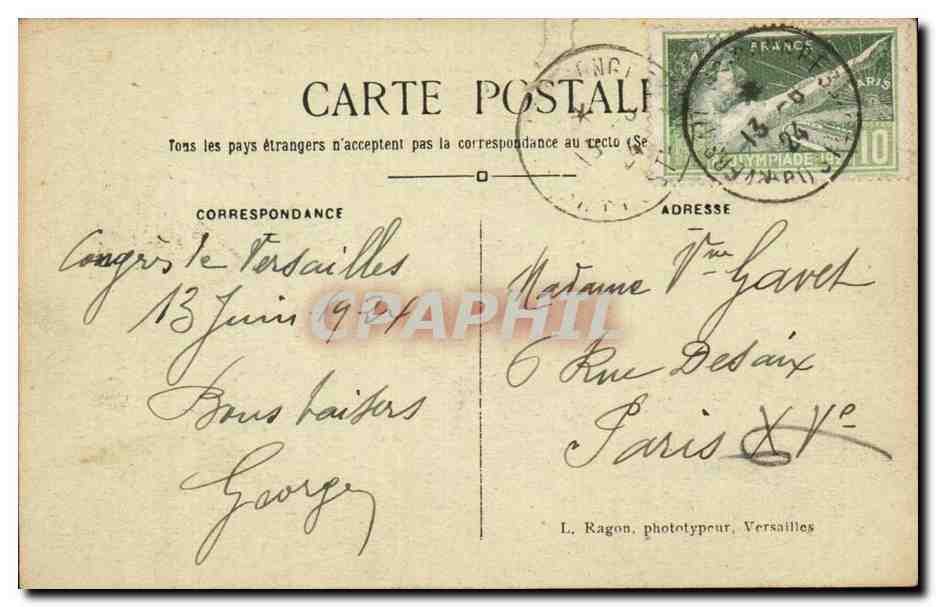 CARTE POSTALE
Tous les pays étrangers n'acceptent pas la correspondance au recto (Se
FRANCE
PARIS
OLYMPIADE 19
10
13 -6
24
CORRESPONDANCE
Congrès de Versailles
13 Juin 1924
Bons baisers
Georges
ADRESSE
Madame Vve Gavet
6 Rue Desaix
Paris XVe
L. Ragon, phototypeur, Versailles
CPAPHIL